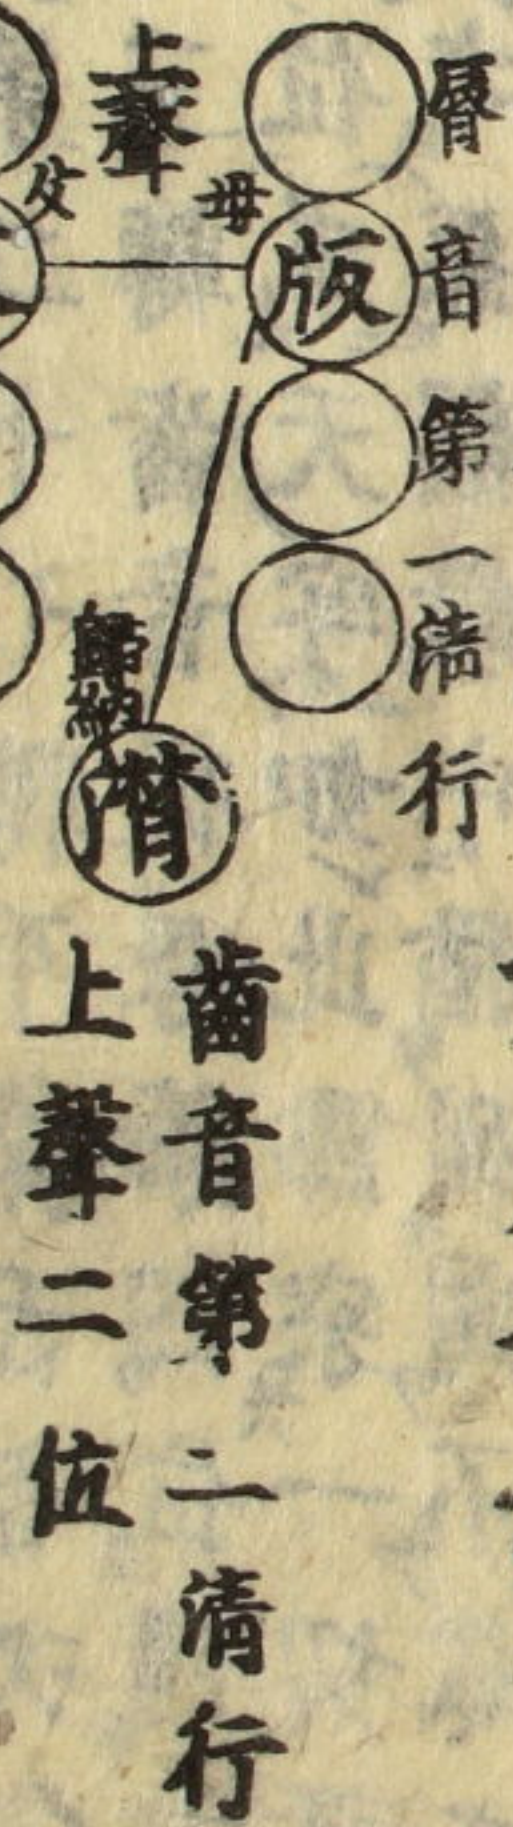 脣音第一清行
版
母
上聲
父
歸納
潸
齒音第二清行
上聲二位